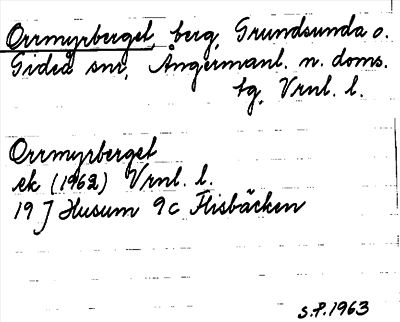 Orrmyrberget, berg, Grundsunda o.
Gideå snr, Ångermanl. n. doms.
tg, Vrnl. l.
Orrmyrberget
ek (1962) Vrnl. l.
19 J Husum 9c Flisbäcken
S.P. 1963